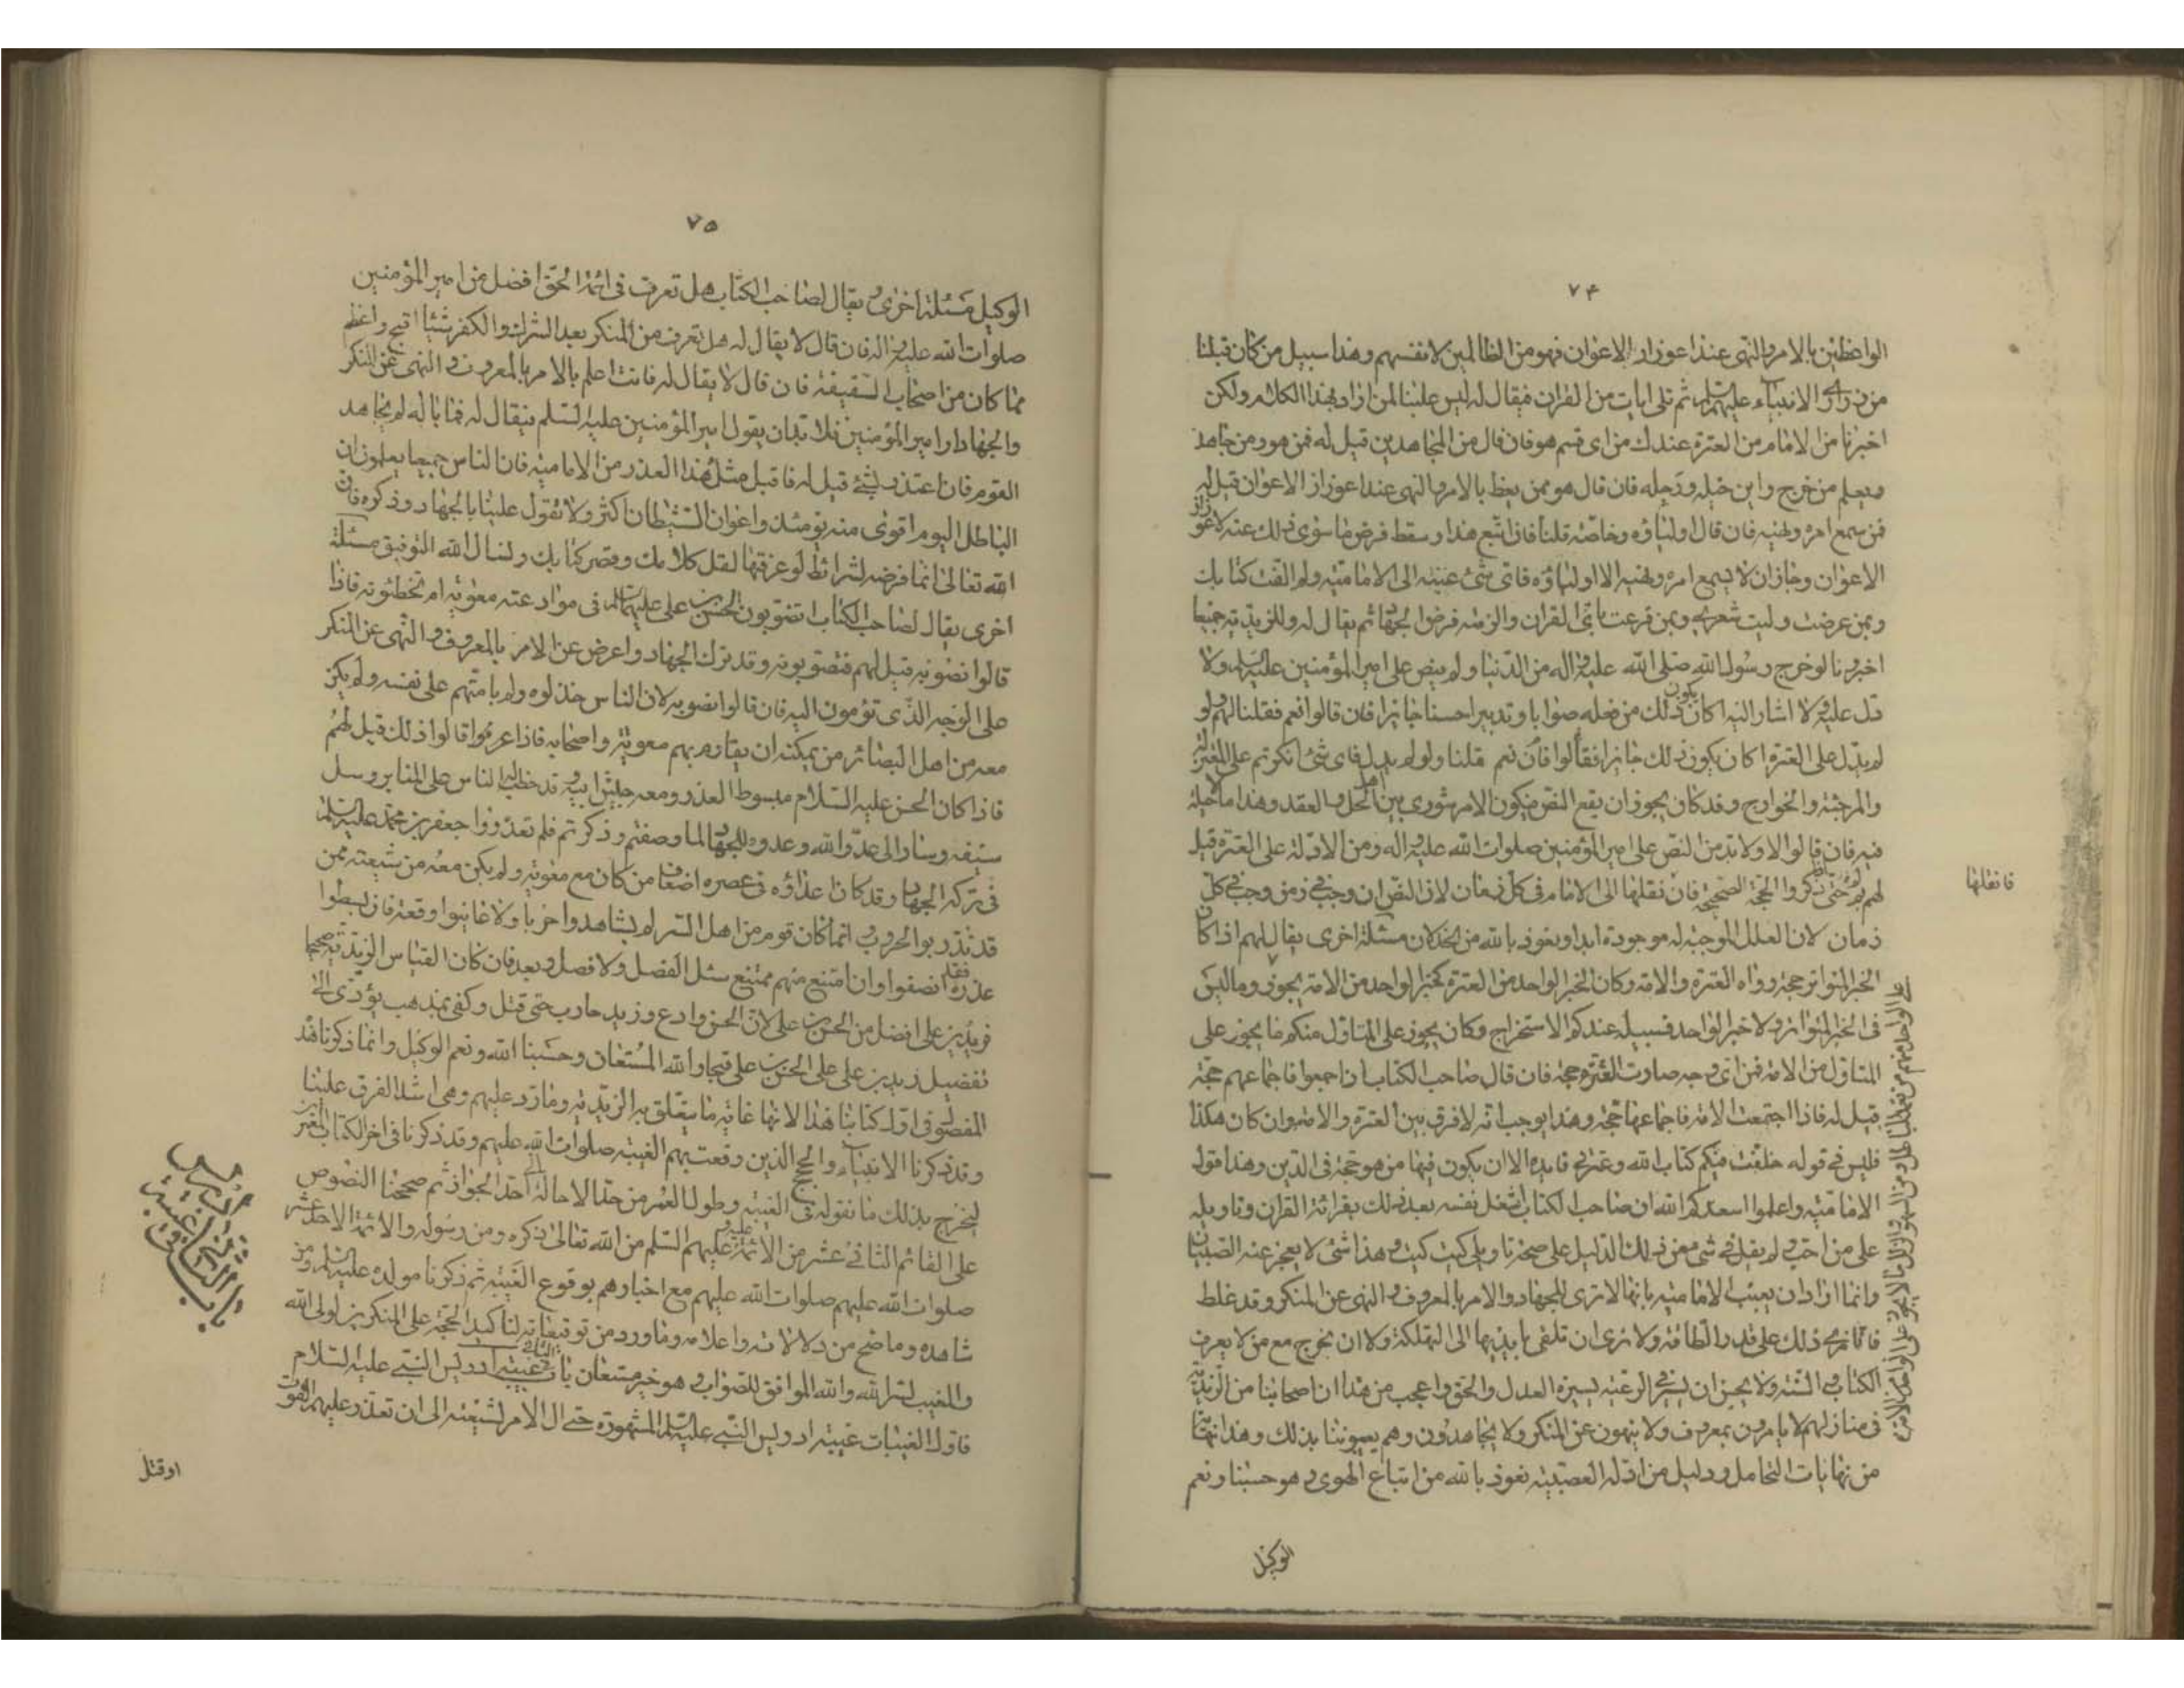 ٧۴
الواعظين بالامر والنهى عند اعواز الاعوان فهو من الظالمين لانفسهم وهذا سبيل من كان قبلنا
من ذرارى الانبياء عليهم السلم ثم تلى ايات من القران فيقال له ليس علينا لمن اراد بهذا الكلام ولكن
اخبرنا من الامام من العترة عندك من اى قسم هو فان قال من المجاهدين قيل له فمن هو ومن جاهد
ويعلم من خرج واين خيله ورجله فان قال هو ممن يعظ بالامر والنهى عند اعواز الاعوان قيل له
فمن سمع امره ونهيه فان قال اولياؤه وخاصته قلنا فان اتبع هذا وسقط فرض ما سوى ذلك عنه لاعواز
الاعوان وجاز ان لا يسمع امره ونهيه الا اولياؤه فاى شئ عبته الى الامامية ولم الفت كتابك
وبمن عرضت وليت شعرى وبمن قرعت باى القران والزمته فرض الجهاد ثم يقال له وللزيدية جميعا
اخبرونا لو خرج رسول الله صلى الله عليه واله من الدنيا ولم ينص على امير المؤمنين عليه السلم ولا
دل عليه ولا اشار اليه اكان يكون ذلك من فعله صوابا وتدبيرا حسنا جائزا فان قالوا نعم فقلنا لهم ولو
لم يدل على العترة اكان يكون ذلك جائزا فقالوا فان نعم قلنا ولو لم يدل فاى شئ انكرتم على المعتزلة
والمرجئة والخوارج وقد كان يجوز ان يقع النص فيكون الامر شورى بين اهل الحل والعقد وهذا ما لا حيلة
فيه فان قالوا لا ولا بد من النص على امير المؤمنين صلوات الله عليه واله ومن الادلة على العترة قيل
لهم لم حتى ذكروا الحجة الصحيحة فان نقلها الى الامام فى كل زمان لان النص ان وجب فى زمن وجب فى كل
فانقلها
زمان لان العلل الموجبة له موجودة ابدا ونعوذ بالله من الخذلان مسئلة اخرى يقال لهم اذا كان
الخبر المتواتر حجة رواه العترة والامة وكان الخبر الواحد من العترة كخبر الواحد من الامة يجوز وما ليس
فى الخبر المتواتر ولا خبر الواحد فسبيله عندكم الاستخراج وكان يجوز على المتاول منكم ما يجوز على
المتاول من الامة فمن اى وجه صارت العترة حجة فان قال صاحب الكتاب ان اجمعوا فاجماعهم حجة
قيل له فاذا اجتمعت الامة فاجماعها حجة وهذا يوجب انه لا فرق بين العترة والامة وان كان هكذا
فليس فى قوله خلفت فيكم كتاب الله وعترتى فايدة الا ان يكون فيها من هو حجة فى الدين وهذا قول
الامامية واعلموا اسعدكم الله ان صاحب الكتاب اشغل نفسه بعد ذلك بقرائة القران وتاويله
على من احب ولم يقل فى شئ من ذلك الدليل على صحة تاويلى كيت كيت وهذا شئ لا يعجز عنه الصبيان
وانما اراد ان يعيب الامامية بانها لا ترى الجهاد والامر بالمعروف والنهى عن المنكر وقد غلط
فانها ترى ذلك على قدر الطاقة ولا ترى ان تلقى بايديها الى التهلكة ولا ان يخرج مع من لا يعرف
الكتاب والسنة ولا يحسن ان يسير فى الرعية بسيرة العدل والحق واعجب من هذا ان اصحابنا من الزيدية
فى منازلهم لا يامرون بمعروف ولا ينهون عن المنكر ولا يجاهدون وهم يعيبوننا بذلك وهذا نهاية
من نهايات التحامل ودليل من ادلة العصبية نعوذ بالله من اتباع الهوى وهو حسبنا ونعم
الوكيل
٧۵
الوكيل مسئلة اخرى ويقال لصاحب الكتاب هل تعرف فى ائمة الحق افضل من امير المؤمنين
صلوات الله عليه واله فان قال لا يقال له هل تعرف من المنكر بعد الشرك والكفر شيئا اقبح واعظم
مما كان من اصحاب السقيفة فان قال لا يقال له فانت اعلم بالامر بالمعروف والنهى عن المنكر
والجهاد او امير المؤمنين فلا بد ان يقول امير المؤمنين عليه السلم فيقال له فما باله لم يجاهد
القوم فان اعتذر بشئ قيل له فاقبل مثل هذا العذر من الامامية فان الناس جميعا يعلمون ان
الباطل اليوم اقوى منه يومئذ واعوان الشيطان اكثر ولا تهول علينا بالجهاد وذكره فان
الله تعالى انما فرضه لشرائط لو عرفتها لقل كلامك وقصر كتابك ونسال الله التوفيق مسئلة
اخرى يقال لصاحب الكتاب اتصوبون الحسن بن على عليهما السلم فى موادعته معوية ام تخطئونه فاذا
قالوا نصوبه قيل لهم فتصوبونه وقد ترك الجهاد واعرض عن الامر بالمعروف والنهى عن المنكر
على الوجه الذى تؤمون اليه فان قالوا نصوبه لان الناس خذلوه ولم يامنهم على نفسه ولم يكن
معه من اهل البصائر من يمكنه ان يقاوم بهم معوية واصحابه فاذا عرفوا قالوا ذلك قيل لهم
فاذا كان الحسن عليه السلام مبسوط العذر ومعه جيش ابيه وقد خطب له الناس على المنابر وسل
سيفه وسار الى عدو الله وعدوه للجهاد لما وصفتم وذكرتم فلم تعذروا جعفر بن محمد عليه السلم
فى تركه الجهاد وقد كان اعداؤه فى عصره اضعاف من كان مع معوية ولم يكن معه من شيعته من
قد تدربوا الحروب وانما كان قوم من اهل السر لم يشاهدوا حربا ولا عاينوا وقعة فان بسطوا
عذره فقد انصفوا وان امتنع منهم ممتنع سئل الفصل ولا فصل وبعد فان كان القياس الزيدية صحيحا
فزيد بن على افضل من الحسن بن على لان الحسن وادع وزيد حارب حتى قتل وكفى بمذهب يؤدى الى
تفضيل زيد بن على على الحسن بن على قبحا والله المستعان وحسبنا الله ونعم الوكيل وانما ذكرنا هذه
الفصول فى اول كتابنا هذا لانها غاية ما يتعلق به الزيدية وما رد عليهم وهى اشد الفرق علينا
وقد ذكرنا الانبياء والحجج الذين وقعت بهم الغيبة صلوات الله عليهم وقد ذكرنا فى اخر الكتاب المعمرين
ليخرج بذلك ما نقوله فى الغيبة وطول العمر من حد الاحالة الى حد الجواز ثم صححنا النصوص
على القائم الثانى عشر من الائمة عليه وعليهم السلم من الله تعالى ذكره ومن رسوله والائمة الاحد عشر
صلوات الله عليهم صلوات الله عليهم مع اخبارهم بوقوع الغيبة ثم ذكرنا مولده عليه السلم ومن
شاهده وما صح من دلالاته واعلامه وما ورد من توقيعاته لتاكيد الحجة على المنكرين لولى الله
والمغيب لسر الله والله الموافق للصواب وهو خير مستعان باب الثانى فى غيبة ادريس النبى عليه السلام
فاول الغيبات غيبة ادريس النبى عليه السلم المشهورة حتى ال الامر لشيعته الى ان تعذر عليهم القوت
اوقتل